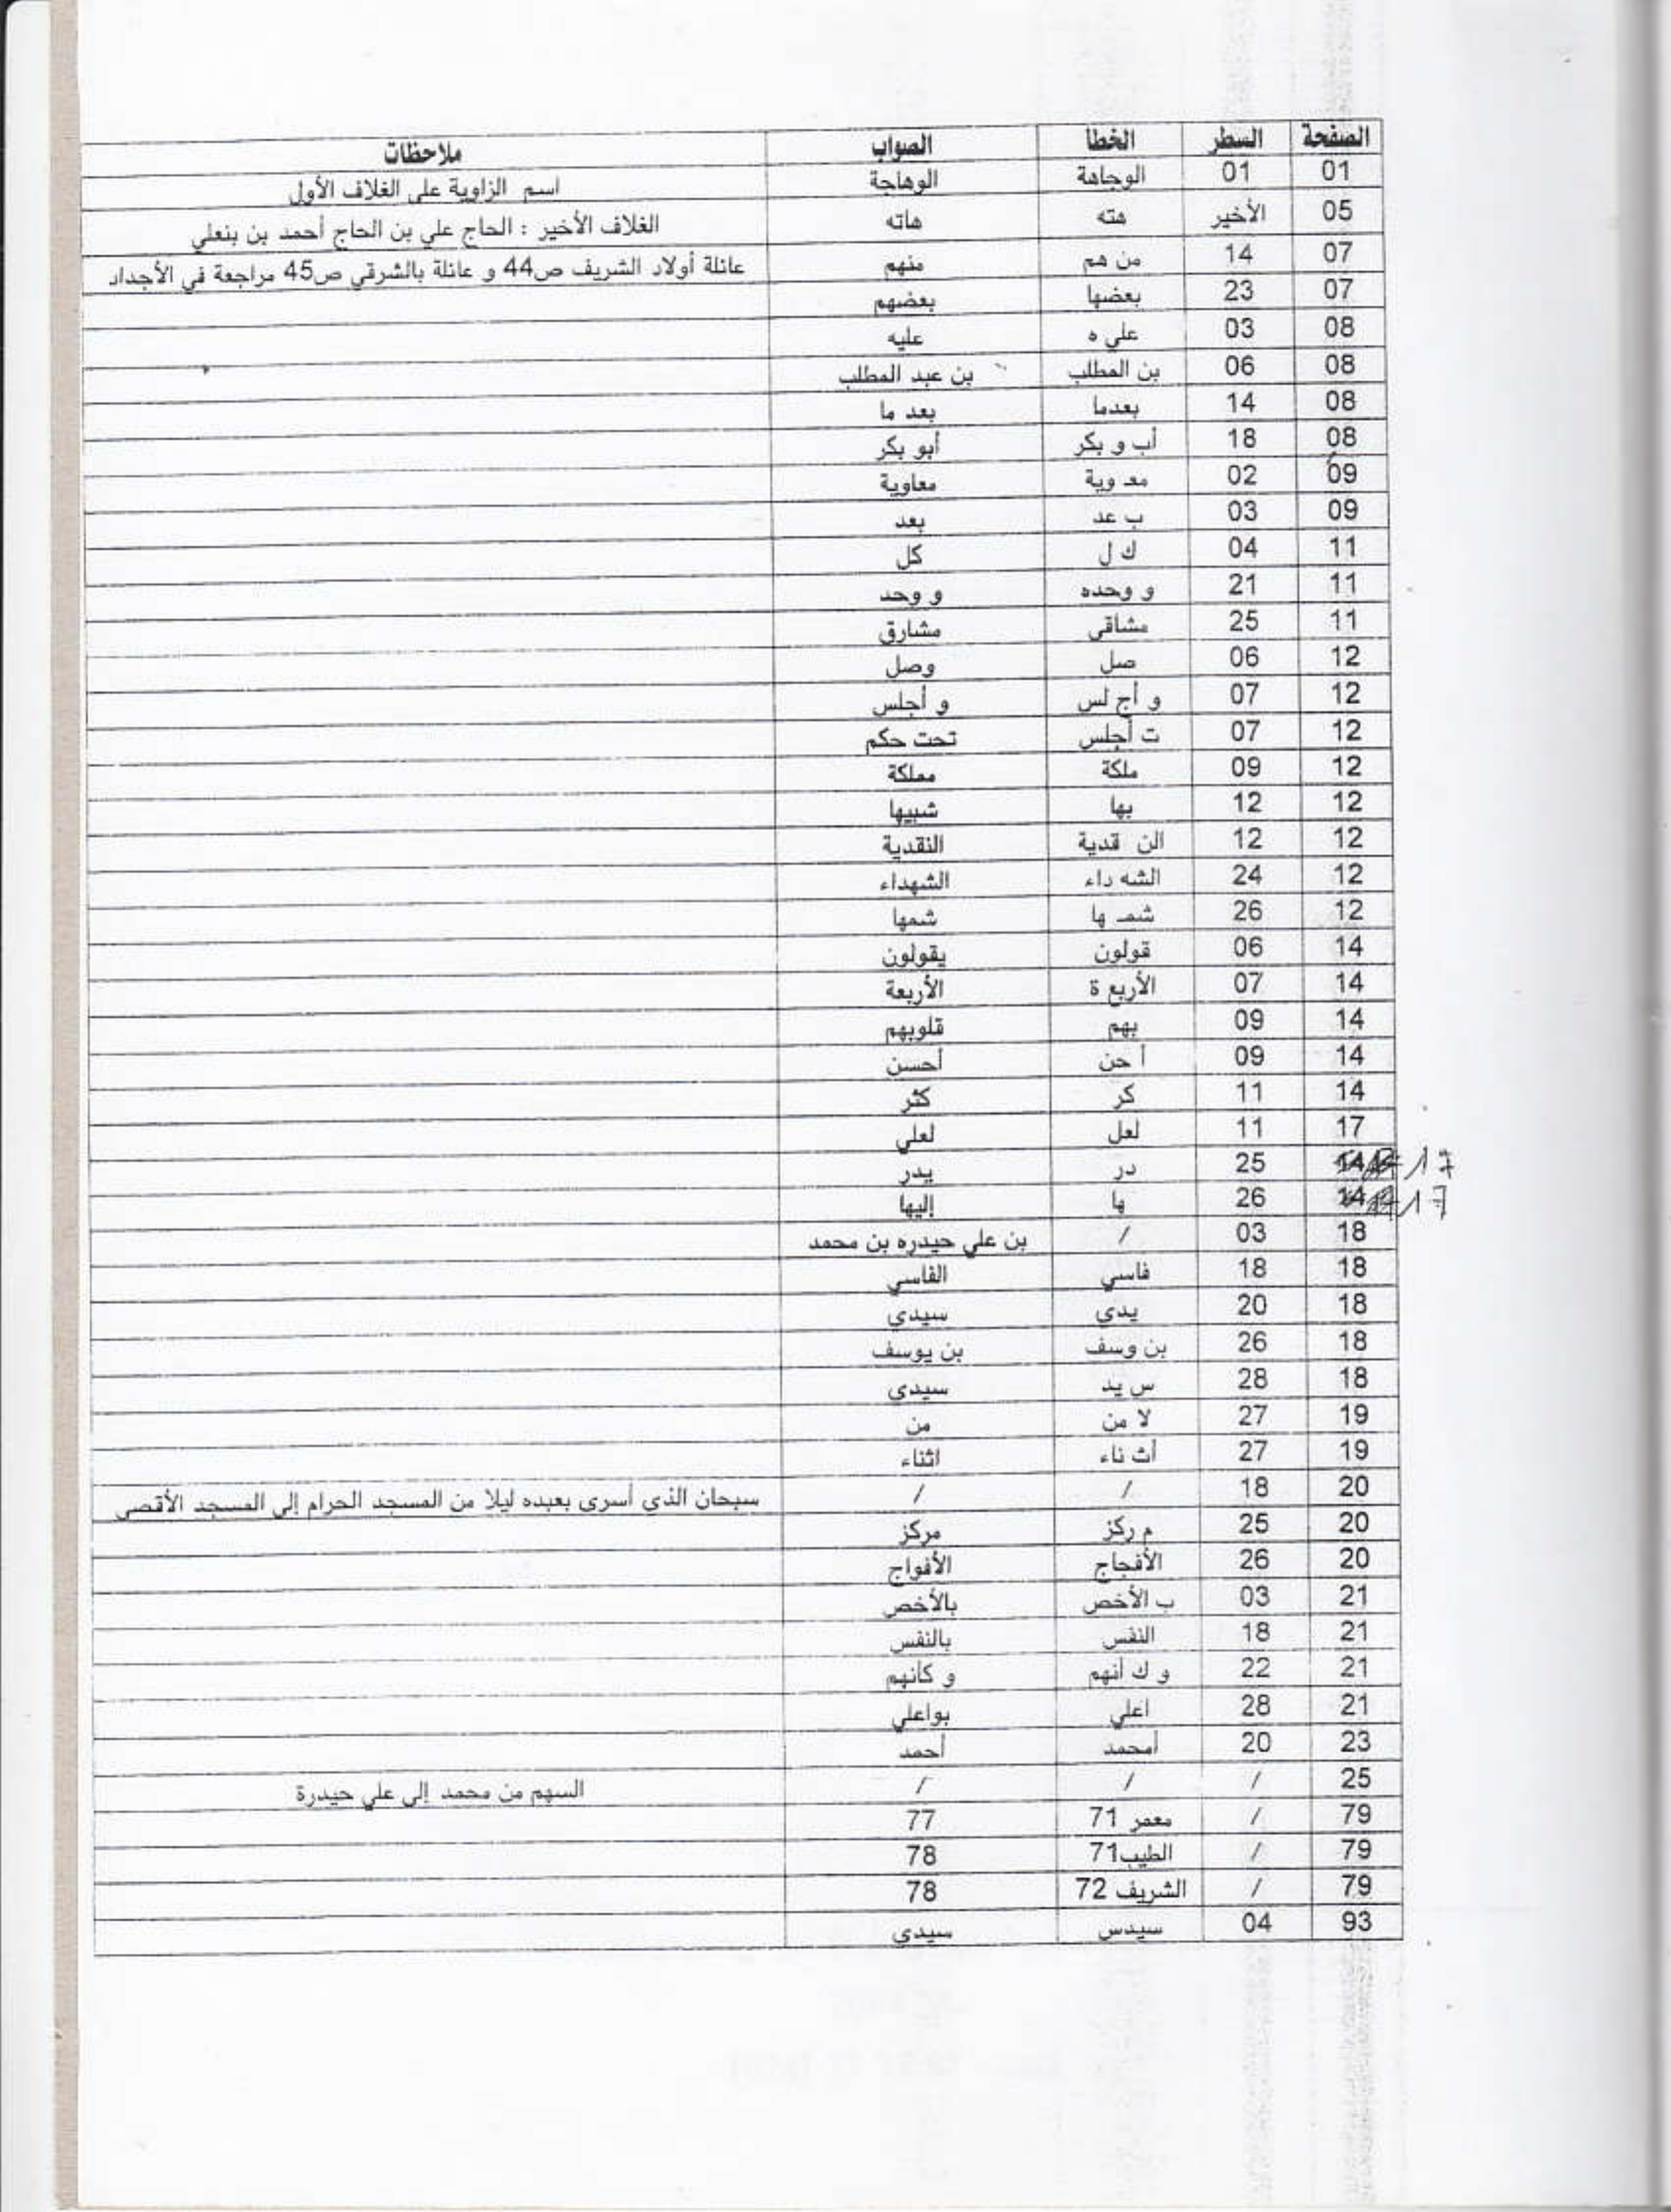 الصفحة السطر الخطا الصواب ملاحظات
01 01 الوجاهة الوهاجة اسم الزاوية على الغلاف الأول
05 الأخير هته هاته الغلاف الأخير : الحاج علي بن الحاج أحمد بن بنعلي
07 14 من هم منهم عائلة أولاد الشريف ص44 و عائلة بالشرقي ص45 مراجعة في الأجداد
07 23 بعضها بعضهم
08 03 علي ه عليه
08 06 بن المطلب بن عبد المطلب
08 14 بعدما بعد ما
08 18 أب و بكر أبو بكر
09 02 معـ وية معاوية
09 03 ب عد بعد
11 04 ك ل كل
11 21 و وحده و وحد
11 25 مشاقي مشارق
12 06 صل وصل
12 07 و أج لس و أجلس
12 07 ت أجلس تحت حكم
12 09 ملكة مملكة
12 12 بها شبيها
12 12 الن قدية النقدية
12 24 الشه داء الشهداء
12 26 شمـ ها شمها
14 06 قولون يقولون
14 07 الأربع ة الأربعة
14 09 بهم قلوبهم
14 09 أ حن أحسن
14 11 كر كثر
17 11 لعل لعلي
17 25 در يدر
17 26 ها إليها
18 03 / بن علي حيدره بن محمد
18 18 فاسي الفاسي
18 20 يدي سيدي
18 26 بن وسف بن يوسف
18 28 س يد سيدي
19 27 لا من من
19 27 أث ناء اثناء
20 18 / / سبحان الذي أسرى بعبده ليلا من المسجد الحرام إلى المسجد الأقصى
20 25 م ركز مركز
20 26 الأفجاج الأفواج
21 03 ب الأخص بالأخص
21 18 النفس بالنفس
21 22 و ك أنهم و كأنهم
21 28 اعلي بواعلي
23 20 أمحمد أحمد
25 / / / السهم من محمد إلى علي حيدرة
79 / معمر 71 77
79 / الطيب71 78
79 / الشريف 72 78
93 04 سيدس سيدي